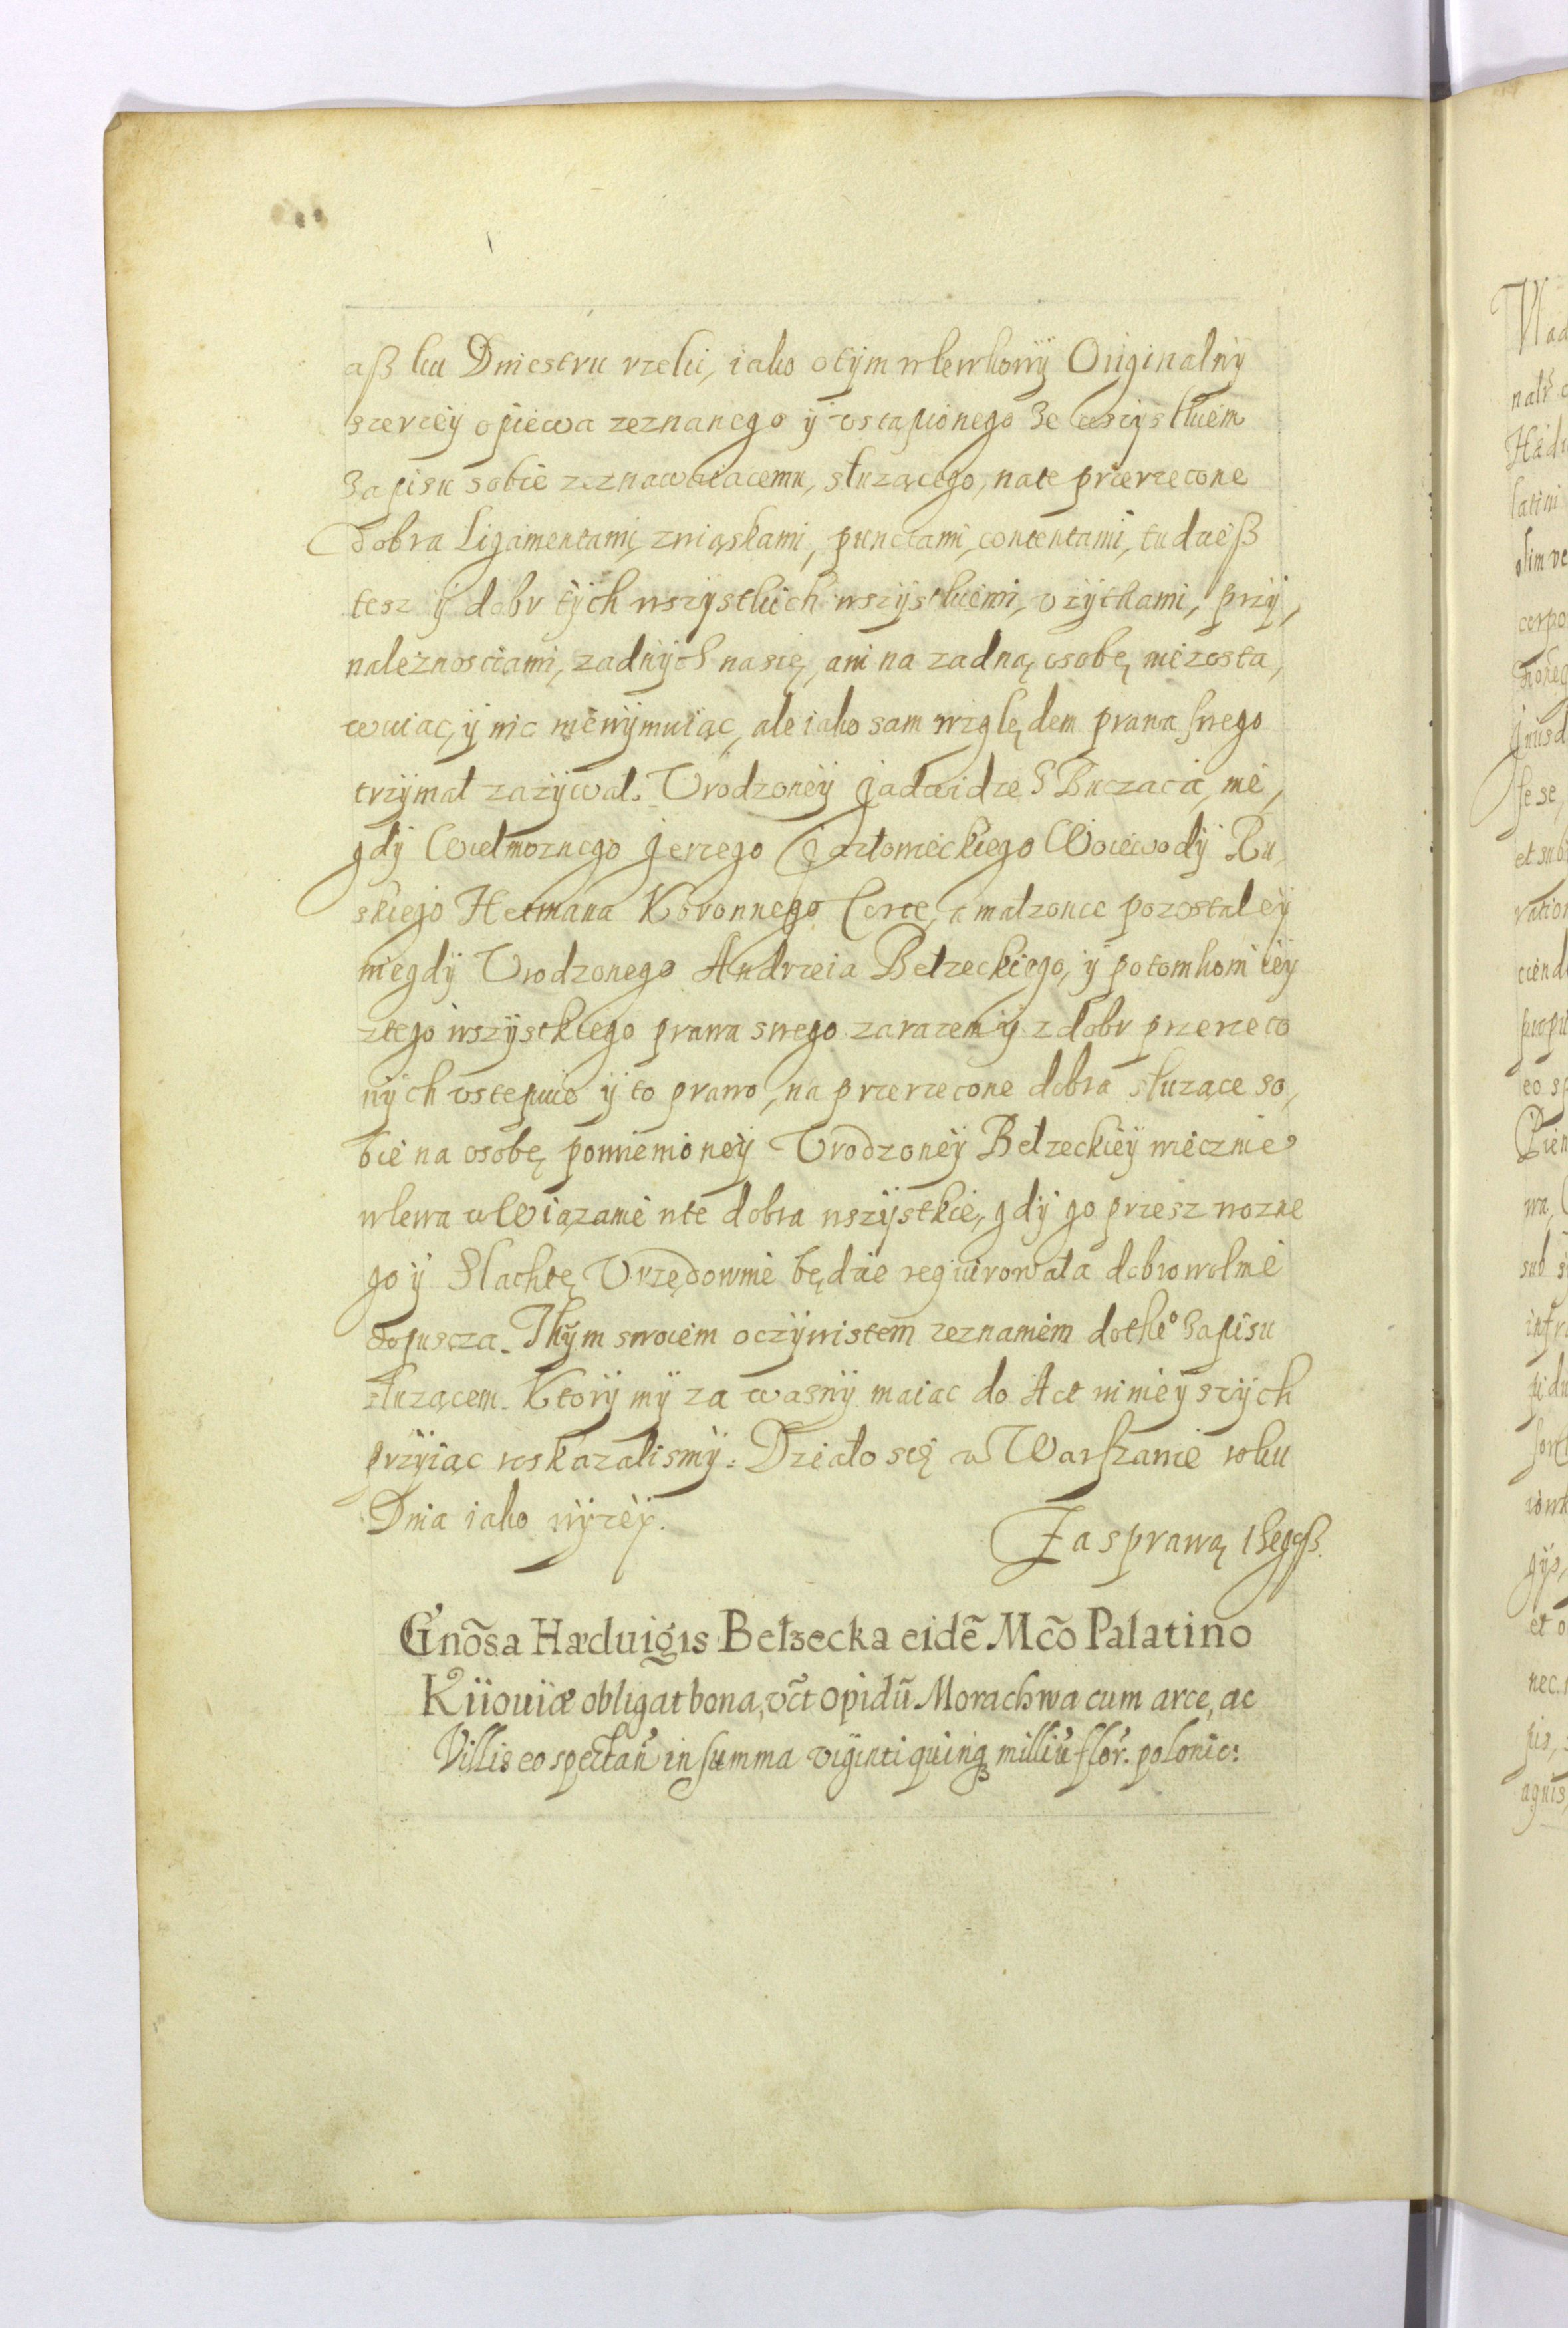 aß ku Dniestru rzeki, iako otÿm wlewkowÿ Originalnÿ
szerzeÿ opiewa zeznanego ÿ vstąpionego ze wszystkiem
Zapisu sobie zeznawaiacemu, słuzącego, na te przerzeczone
dobra Ligamentami, zwiąskami, punctami, contentami, tudzieß
tesz ÿ dobr tÿch wszÿstkich wszÿstkiemi, vżÿtkami, przÿ,
należnosciami, zadnÿch nasię, ani na zadną osobę niezosta,
wuiąc, ÿ nic niewÿmuiąc, ale iako sam względem prawa swego
trzÿmał zażÿwał. Vrodzoneÿ Jadwidze S Buczacza, nie,
gdÿ Wielmoznego Jerzego Jazłowieckiego Woiewodÿ Ru,
skiego Hetmana Koronnego Corce, a małzonce pozostałeÿ
niegdÿ Vrodzonego Andrzeia Bełzeckiego, ÿ potomkom ieÿ
ztego wszÿstkiego prawa swego zarazem ÿ z dobr przerzeczo
nÿch vstepuie ÿ to prawo, na przerzeczone dobra słuzące so,
bie na osobę pomienioneÿ Vrodzoneÿ Bełzeckieÿ wiecznie
wlewa a Wiązanie wte dobra wszÿstkie, gdÿ go przesz wozne
go ÿ Slachtę Vrzędownie będzie requirowała dobrowolnie
dopuscza. Thÿm swoiem oczÿwistem zeznaniem do the° Zapisu
słuzącem. Ktorÿ mÿ za wasnÿ maiac do Act ninieÿszÿch
przÿiąc roskazalismÿ. Działo się w Warszawie roku
Dnia iako wÿzeÿ.
Za sprawą thegoß.
Gnõsa Hæduigis Bełzecka eidē Mcõ Palatino
Kiiouiæ obligat bona, vc̃t opidũ Morachwa cum arce, ac
Villis eo spectañ in summa viginti quinq milliũ flor. polonic: